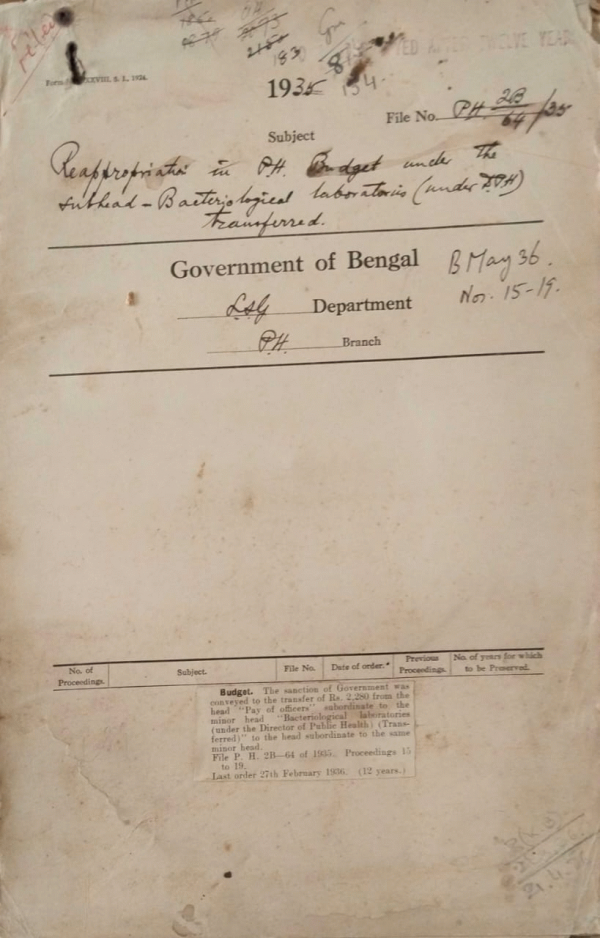 1935
File No. P.H. 2B/64/35
Subject
Reappropriation in P.H. Budget under the
subhead - Bacteriological laboratories (under D.P.H)
transferred.
Government of Bengal
B May 36.
L.S.G Department
Nos. 15-19.
P.H. Branch
No. of Proceedings.
Subject.
File No.
Date of order.*
Previous Proceedings.
No. of years for which to be Preserved.
Budget. The sanction of Government was
conveyed to the transfer of Rs. 2,280 from the
head "Pay of officers" subordinate to the
minor head "Bacteriological laboratories
(under the Director of Public Health) (Trans-
ferred)" to the head subordinate to the same
minor head.
File P. H. 2B—64 of 1935. Proceedings 15
to 19.
Last order 27th February 1936. (12 years.)